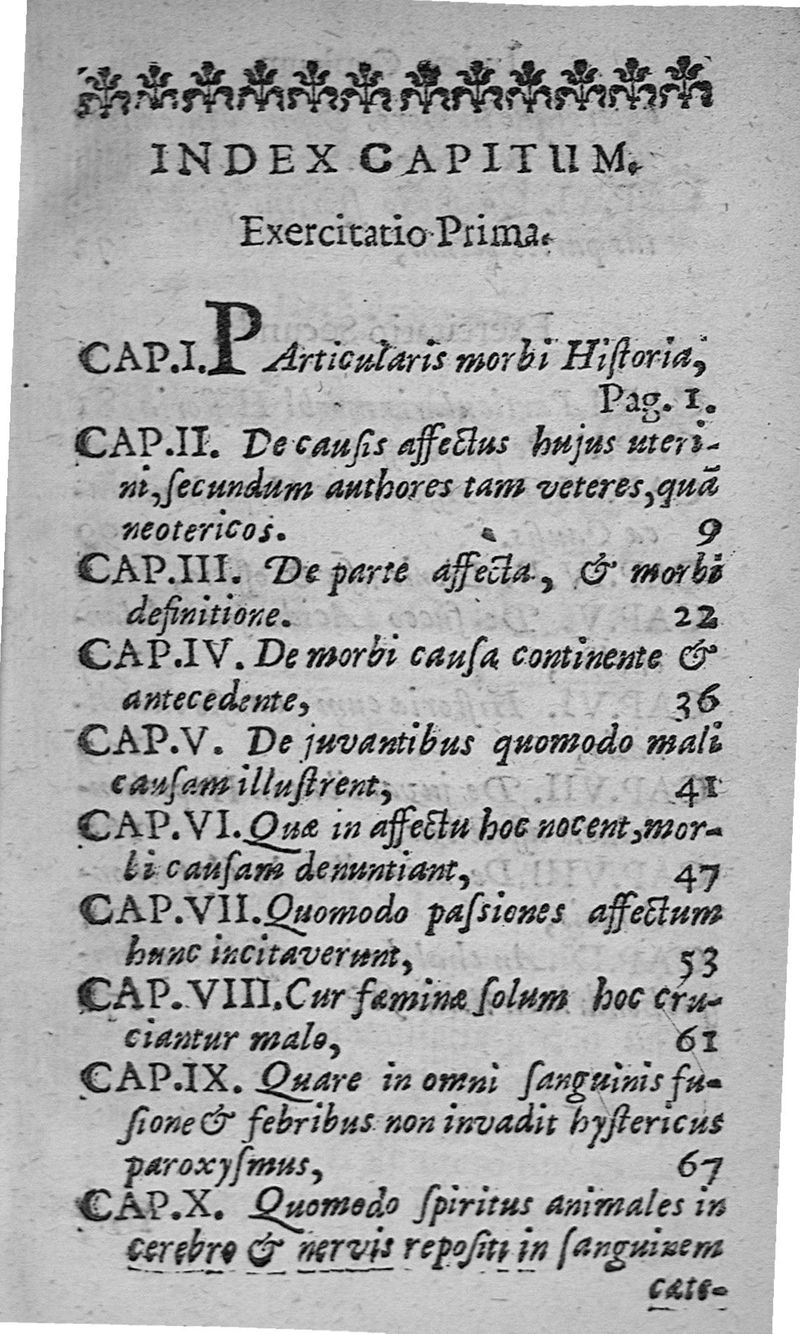 INDEX CAPITUM.
Exercitatio Prima.
CAP.I. PArticularis morbi Hiſtoria,
Pag. 1.
CAP.II. De cauſis affectus hujus uteri-
ni, ſecundum authores tam veteres, quã
neotericos. 9
CAP.III. De parte affecta, & morbi
definitione. 22
CAP.IV. De morbi cauſa continente &
antecedente, 36
CAP.V. De juvantibus quomodo mali
cauſam illuſtrent, 41
CAP.VI. Quæ in affectu hoc nocent, mor-
bi cauſam denuntiant, 47
CAP.VII. Quomodo paſſiones affectum
hunc incitaverunt, 53
CAP.VIII. Cur fæminæ ſolum hoc cru-
ciantur malo, 61
CAP.IX. Quare in omni ſanguinis fu-
ſione & febribus non invadit hyſtericus
paroxyſmus, 67
CAP.X. Quomodo ſpiritus animales in
cerebro & nervis repoſiti in ſanguinem
cate-